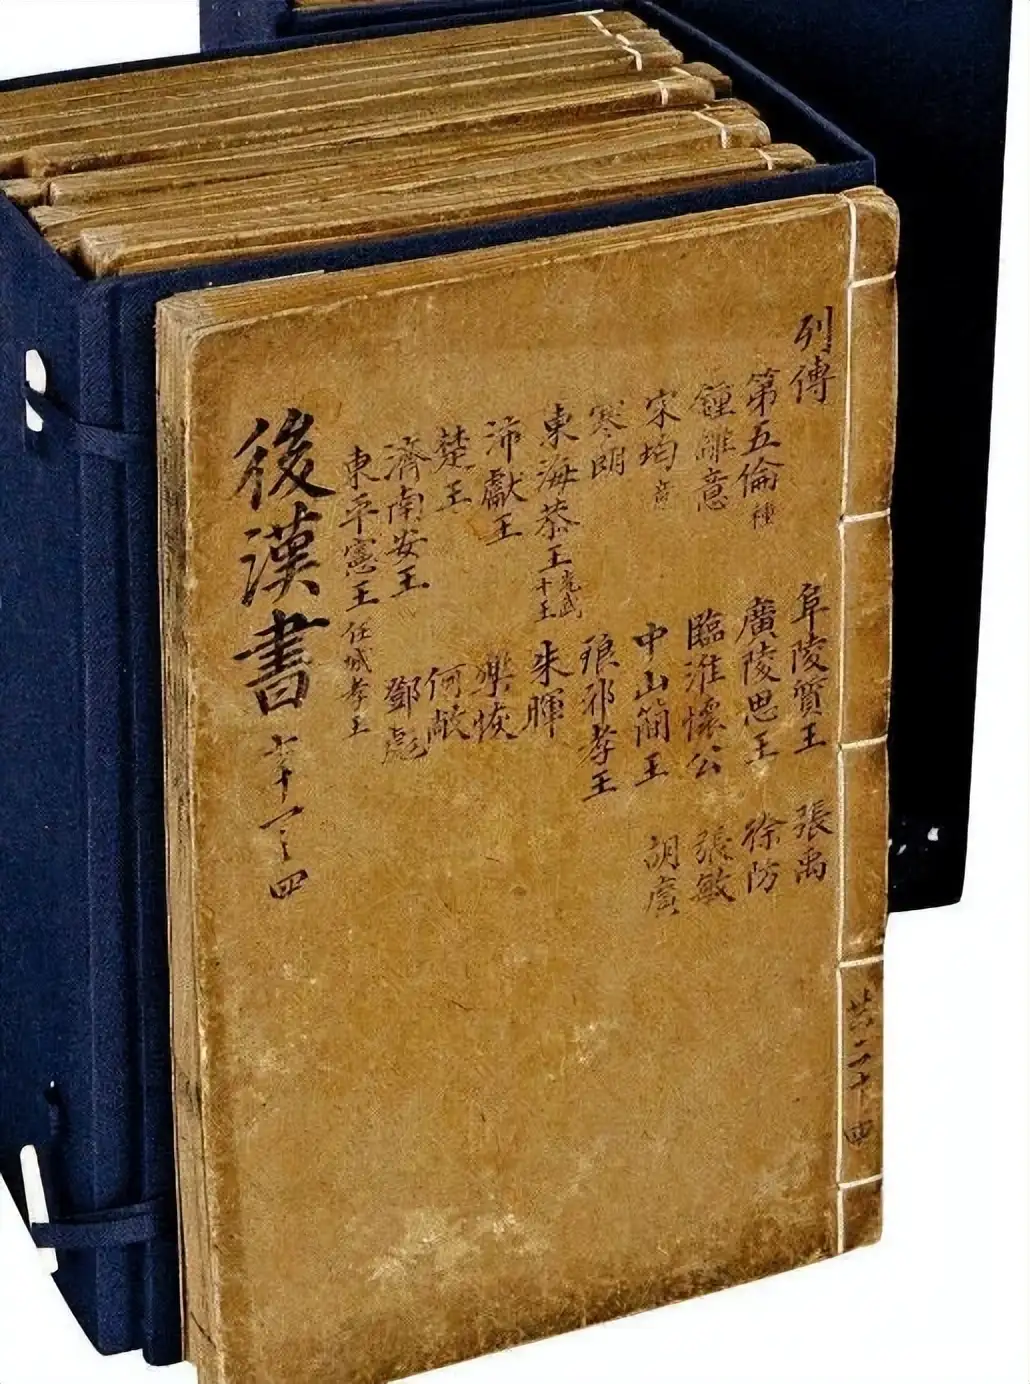 列傳
第五倫 種
鍾離意
宋均 意
寒朗
東海恭王 光武十王
沛獻王
楚王
濟南安王
東平憲王 任城孝王
阜陵質王
廣陵思王
臨淮懷公
中山簡王
琅邪孝王
朱暉
樂恢
何敞
鄧彪
張禹
徐防
張敏
胡廣
後漢書 七十一之四
共二十四